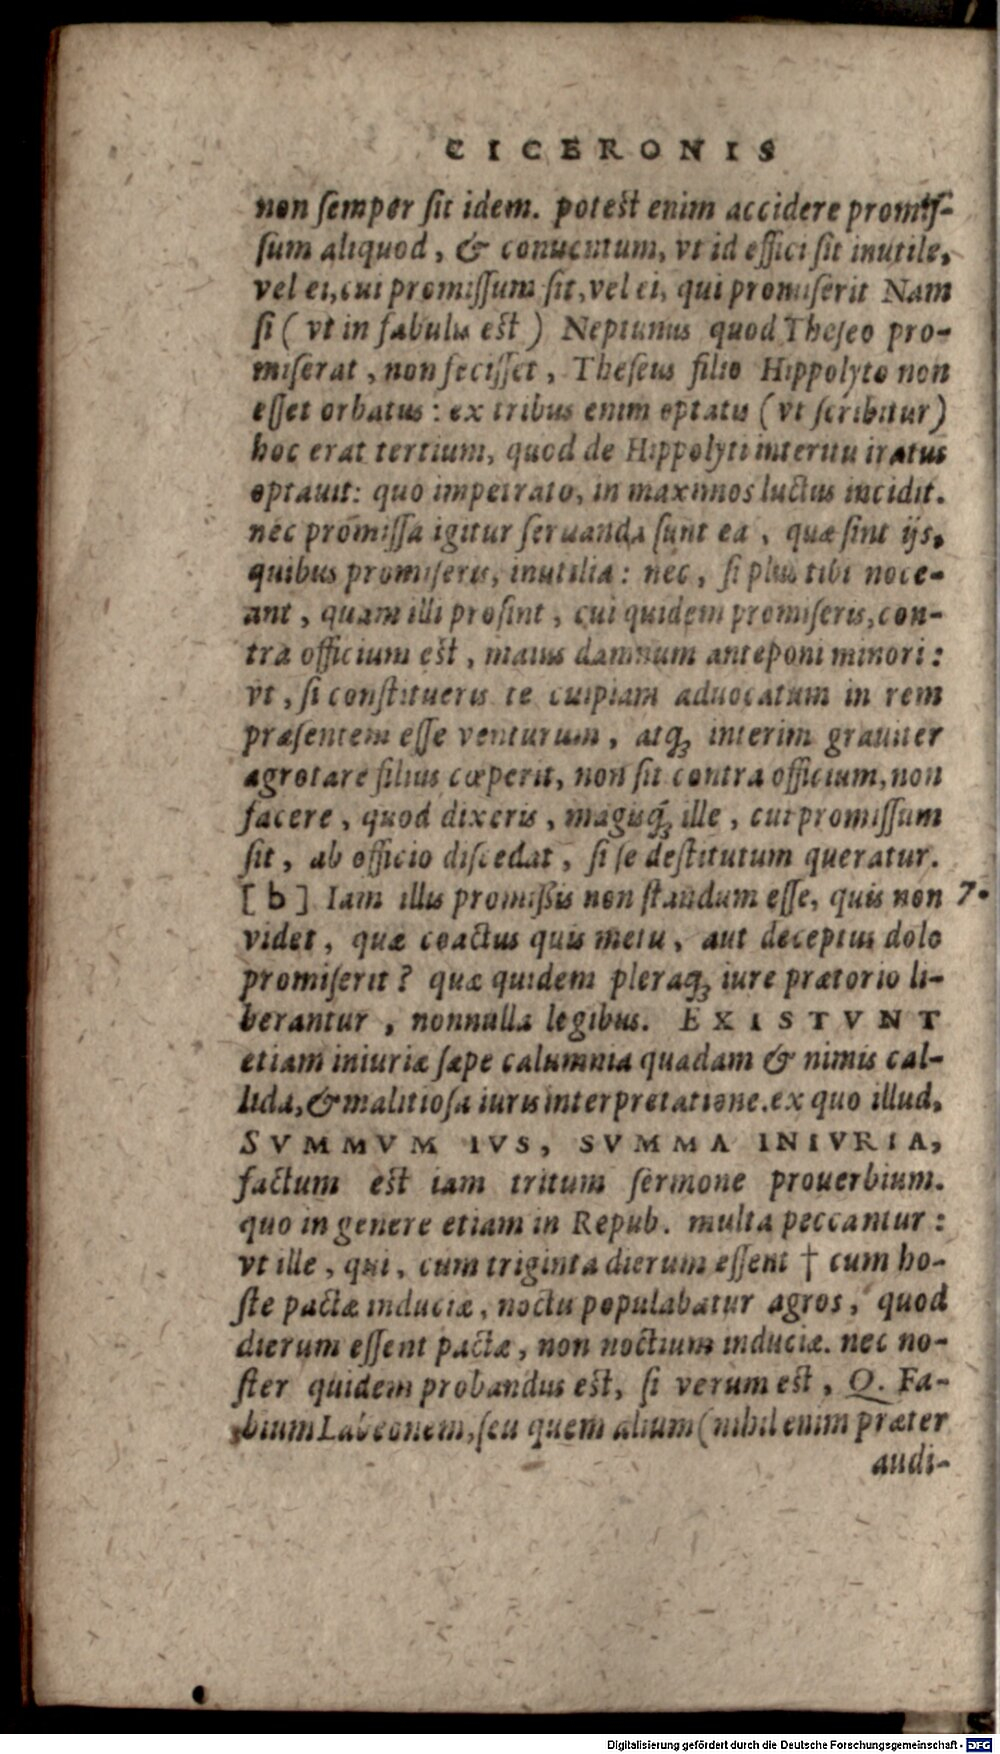 CICERONIS
non ſemper ſit idem. poteſt enim accidere promiſ-
ſum aliquod, & conuentum, vt id effici ſit inutile,
vel ei, cui promiſſum ſit, vel ei, qui promiſerit Nam
ſi (vt in fabulis eſt) Neptunus quod Theſeo pro-
miſerat, non feciſſet, Theſeus filio Hippolyto non
eſſet orbatus: ex tribus enim optatis (vt ſcribitur)
hoc erat tertium, quod de Hippolyti interitu iratus
optauit: quo impetrato, in maximos luctus incidit.
nec promiſſa igitur ſeruanda ſunt ea, quæ ſint ijs,
quibus promiſeris, inutilia: nec, ſi plus tibi noce-
ant, quam illi proſint, cui quidem promiſeris, con-
tra officium eſt, maius damnum anteponi minori:
vt, ſi conſtitueris te cuipiam aduocatum in rem
præſentem eſſe venturum, atq; interim grauiter
ægrotare filius cœperit, non ſit contra officium, non
facere, quod dixeris, magisq́; ille, cui promiſſum
ſit, ab officio diſcedat, ſi ſe deſtitutum queratur.
[b] Iam illis promiſſis non ſtandum eſſe, quis non 7.
videt, quæ coactus quis metu, aut deceptus dolo
promiſerit? quæ quidem pleraq; iure prætorio li-
berantur, nonnulla legibus. EXISTVNT
etiam iniuriæ ſæpe calumnia quadam & nimis cal-
lida, & malitioſa iuris interpretatione. ex quo illud,
SVMMVM IVS, SVMMA INIVRIA,
factum eſt iam tritum ſermone prouerbium.
quo in genere etiam in Repub. multa peccantur:
vt ille, qui, cum triginta dierum eſſent † cum ho-
ſte pactæ induciæ, noctu populabatur agros, quod
dierum eſſent pactæ, non noctium induciæ. nec no-
ſter quidem probandus eſt, ſi verum eſt, Q. Fa-
bium Labeonem, ſeu quem alium (nihil enim præter
audi-
Digitalisierung gefördert durch die Deutsche Forschungsgemeinschaft - DFG